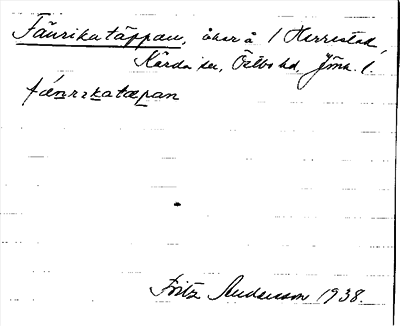 Fänrikatäppan, åker å 1 Herrestad,
Kärda sn, Östbo hd, Jönk. l.
fǽnrikatæpan
Fritz Andersson 1938.